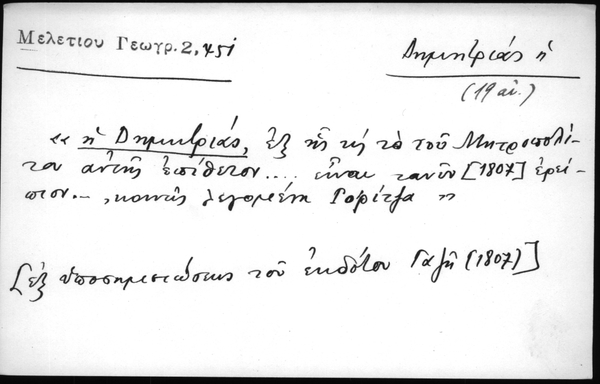 Μελετίου Γεωγρ. 2, 451
Δημητριάς ἡ
(19 αἰ.)
« ἡ Δημητριάς, ἐξ ἧς καὶ τὸ τοῦ Μητροπολί-
του αὐτῆς ἐπίθετον.... εἶναι τανῦν [1807] ἐρεί-
πιον.–, κοινῶς λεγομένη Γορίτζα »
[ἐξ ὑποσημειώσεως τοῦ ἐκδότου Γαζῆ (1807)]